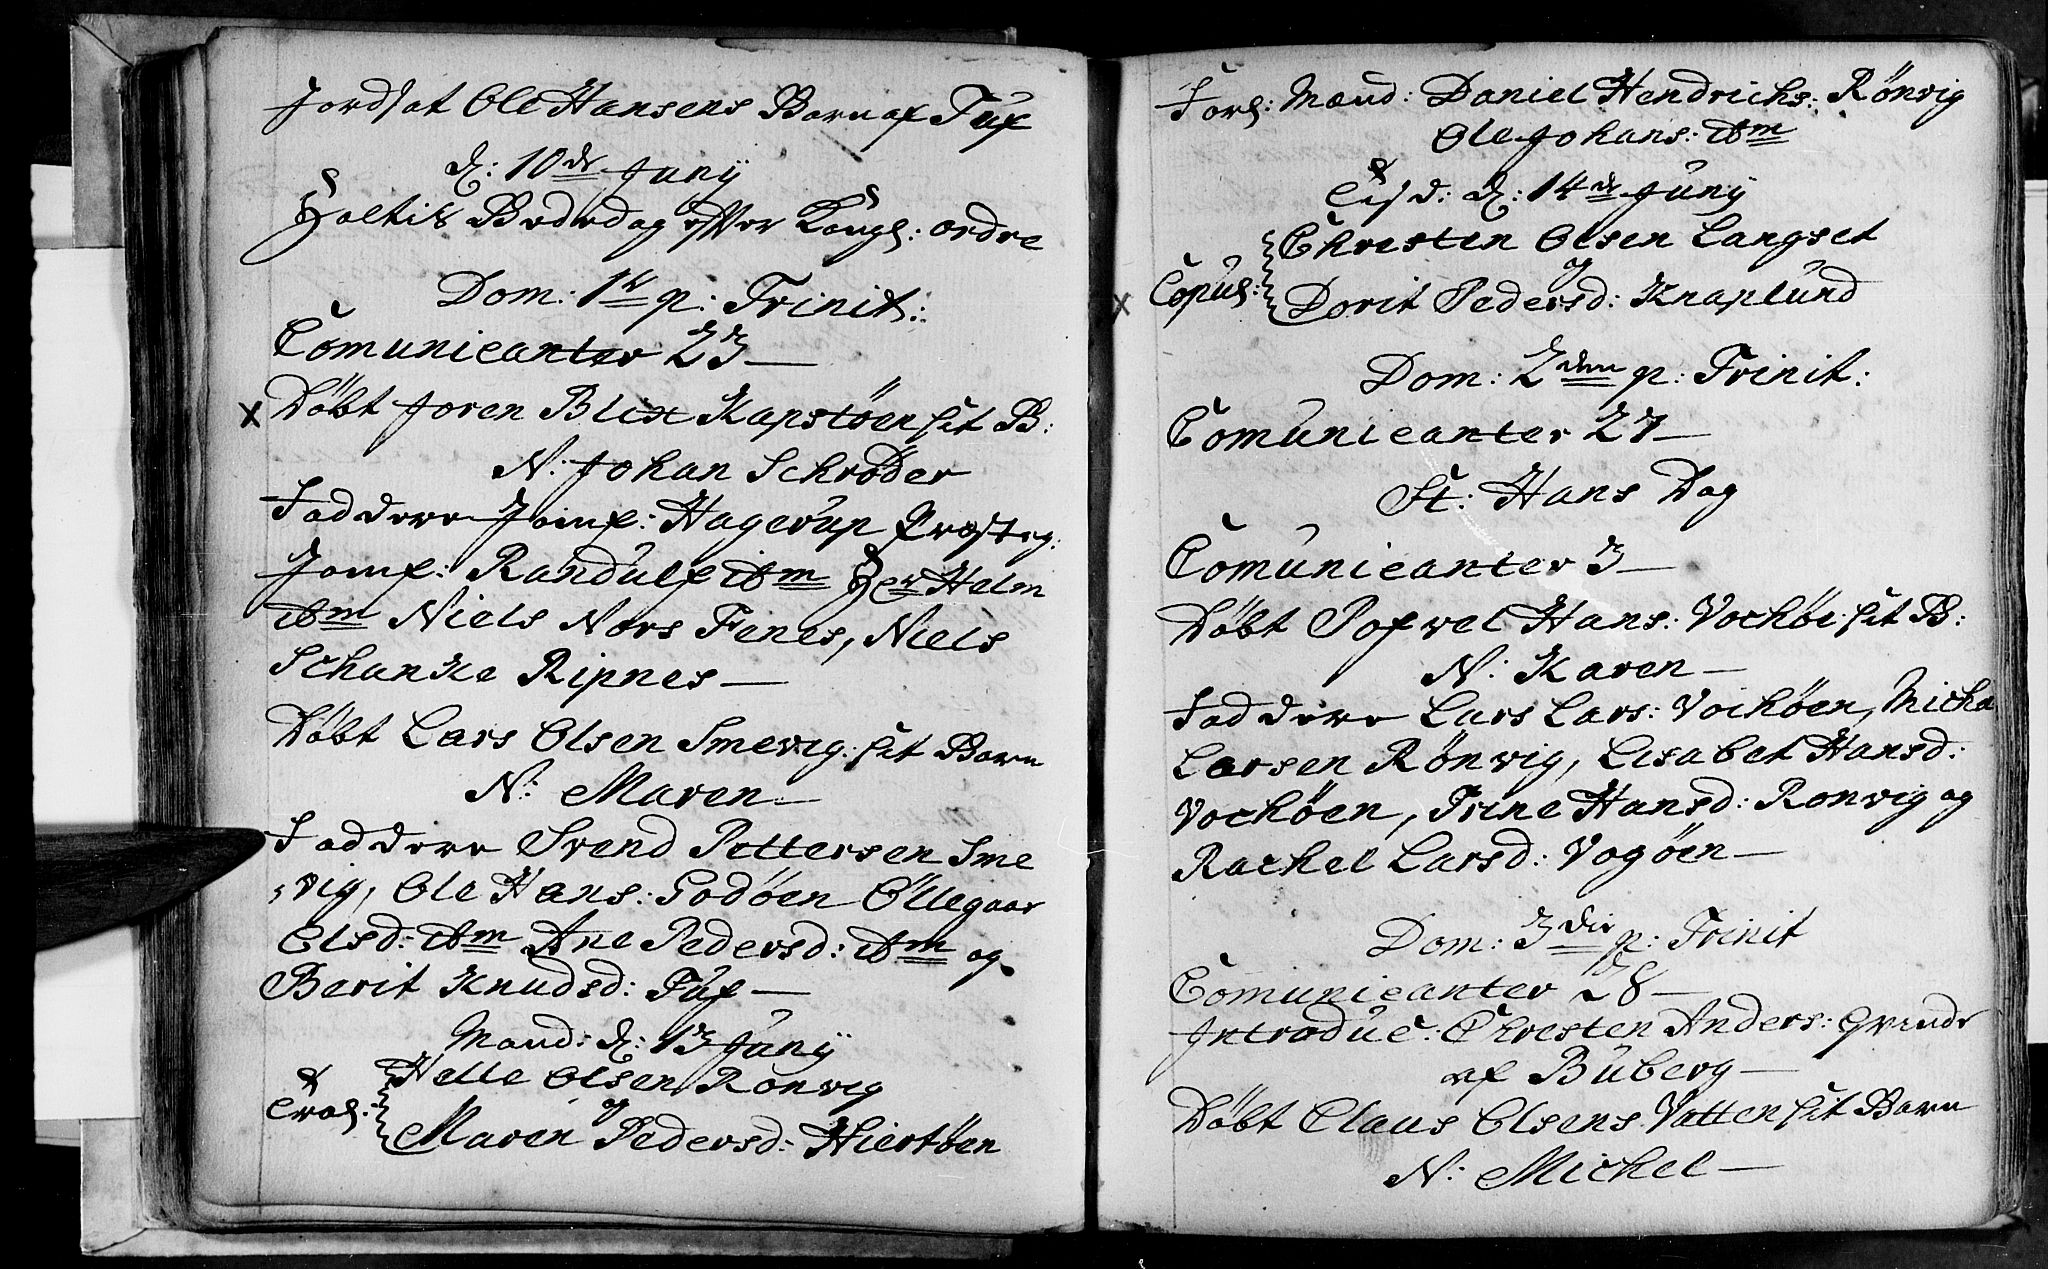 Jordsat Ole Hansens Barn af Tuf
d: 10de Juny
Holtis Bededag efter Kongl: ordre
Dom: 1te p: Trinit:
Comunicanter 23 —
x Döbt Joren Blix Kapstöen sit B:
N: Johan Schrøder
Faddere Jomf: Hagerup Præsteg:
Jomf: Randulf ibm Her Helm
ibm Niels Nors Fenes, Niels
Schanke Ripnes —
Döbt Lars Olsen Smevig: sit Barn
N: Maren —
Faddere Svend Pettersen Sme
vig, Ole Hans: Godöen Øllegaar
Olsd: ibm Ane Pedersd: ibm og
Berit Knudsd: Tuf —
Mand: d: 13 Juny
Helle Olsen Ronvig
Trol: og
Maren Pedersd: Hiertöen
Forl: Mænd: Daniel Hendrichs: Rönvig
Ole Johans: ibm
Tisd: d: 14de Juny
Christen Olsen Langset
x Copul: og
Dorit Pedersd: Knaplund
Dom: 2den p: Trinit:
Comunicanter 27 —
St: Hans Dag
Comunicanter 3 —
Döbt Pofvel Hans: Vochöe sit B:
N: Karen —
Faddere Lars Lars: Vochöen, Micha
Larsen Rönvig, Lisabet Hansd:
Vochöen, Trine Hansd: Ronvig og
Rachel Larsd: Vogöen —
Dom: 3die p: Trinit
Comunicanter 28 —
Introduc: Christen Anders: Qvinde
af Buberg —
Döbt Claus Olsens Vatten sit Barn
N: Michel —